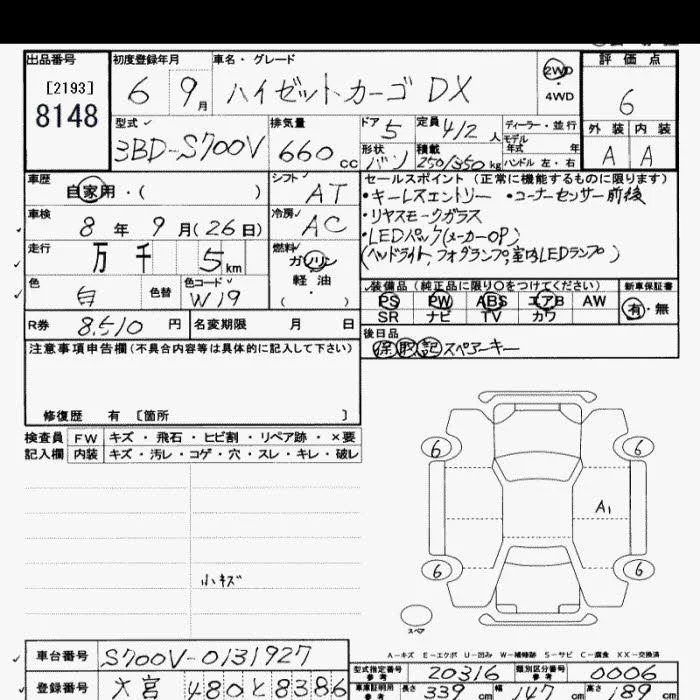 出品番号 初度登録年月 車名・グレード 2WD 評価点
[2193] 6 9月 ハイゼットカーゴ DX ・4WD 6
8148 型式 排気量 ドア 5 定員 4/2人 ディーラー・並行 外装 内装
モデル年式 年
3BD-S700V 660cc 形状 バン 積載 250/350kg ハンドル 左・右 A A
車歴 自家用・( ) シフト AT セールスポイント(正常に機能するものに限ります)
・キーレスエントリー ・コーナーセンサー前後
車検 8年 9月(26日) 冷房 AC ・リヤスモークガラス
・LEDパック(メーカーOP)
走行 万 千 5km 燃料 ガソリン (ヘッドライト,フォグランプ,室内LEDランプ)
軽油
・( )
色 白 色替 色コード W19 装備品(純正品に限り○をつけてください) 新車保証書
PS PW ABS エアB AW 有・無
R券 8,510円 名変期限 月 日 SR ナビ TV カワ
注意事項申告欄(不具合内容等は具体的に記入して下さい) 後日品
保 取 記 スペアーキー
修復歴 有 〔箇所 〕
検査員 FW キズ・飛石・ヒビ割・リペア跡・×要
記入欄 内装 キズ・汚レ・コゲ・穴・スレ・キレ・破レ
6 6
A1
小キズ
6 6
スペア
A-キズ E-エクボ U-凹み W-補修跡 S-サビ C-腐食 XX-交換済
車台番号 S700V-0131927
型式指定番号 参考 20316 類別区分番号 参考 0006
登録番号 大宮 480と8386 車庫証明用 参考 長さ 339cm 幅 147cm 高さ 189cm